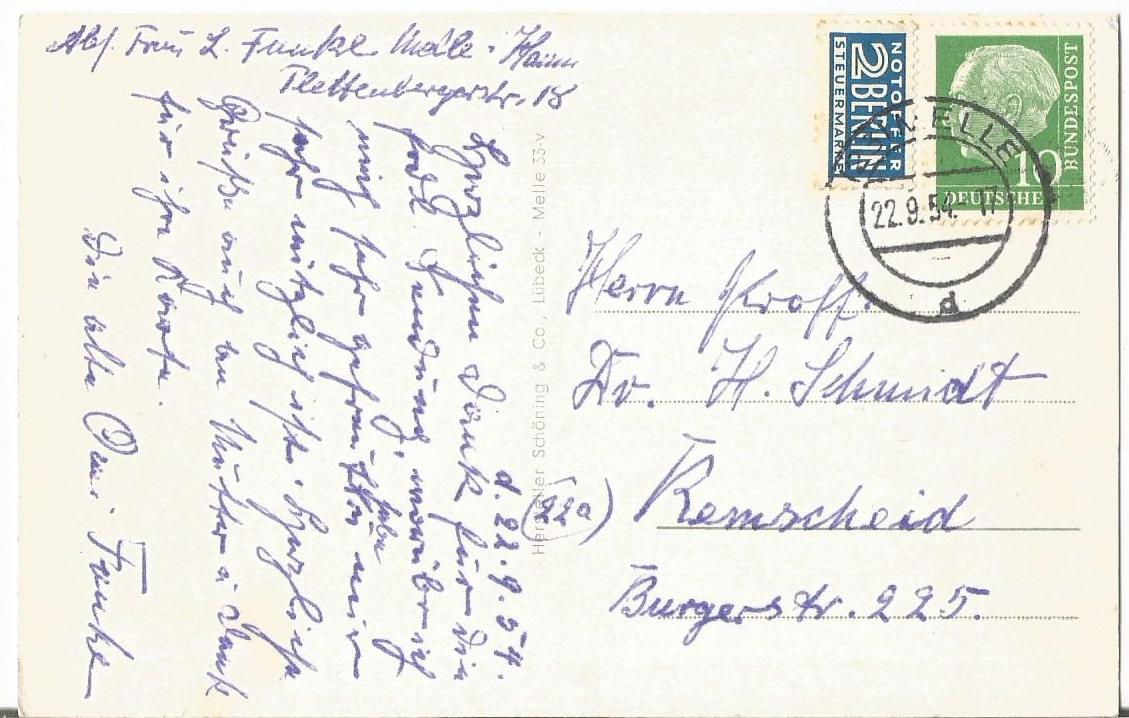 Abs. Frau L. Funke Melle i. Hann.
Plettenbergerstr. 18
NOTOPFER
2 BERLIN
STEUERMARKE
DEUTSCHE
BUNDESPOST
10
MELLE
22.9.54.-17
d
Herrn Prof.
Dr. H. Schmidt
(22a) Remscheid
Burgerstr. 225.
Hersteller Schöning & Co., Lübeck - Melle 33-V
d. 22.9.54.
Herzlichen Dank für die
Sendung worüber ich
mich sehr gefreut habe
sehr nützlich ist. Herzliche
Grüße auch an Mutter u. Dank
für ihre Karte.
Die alte Omi Funke